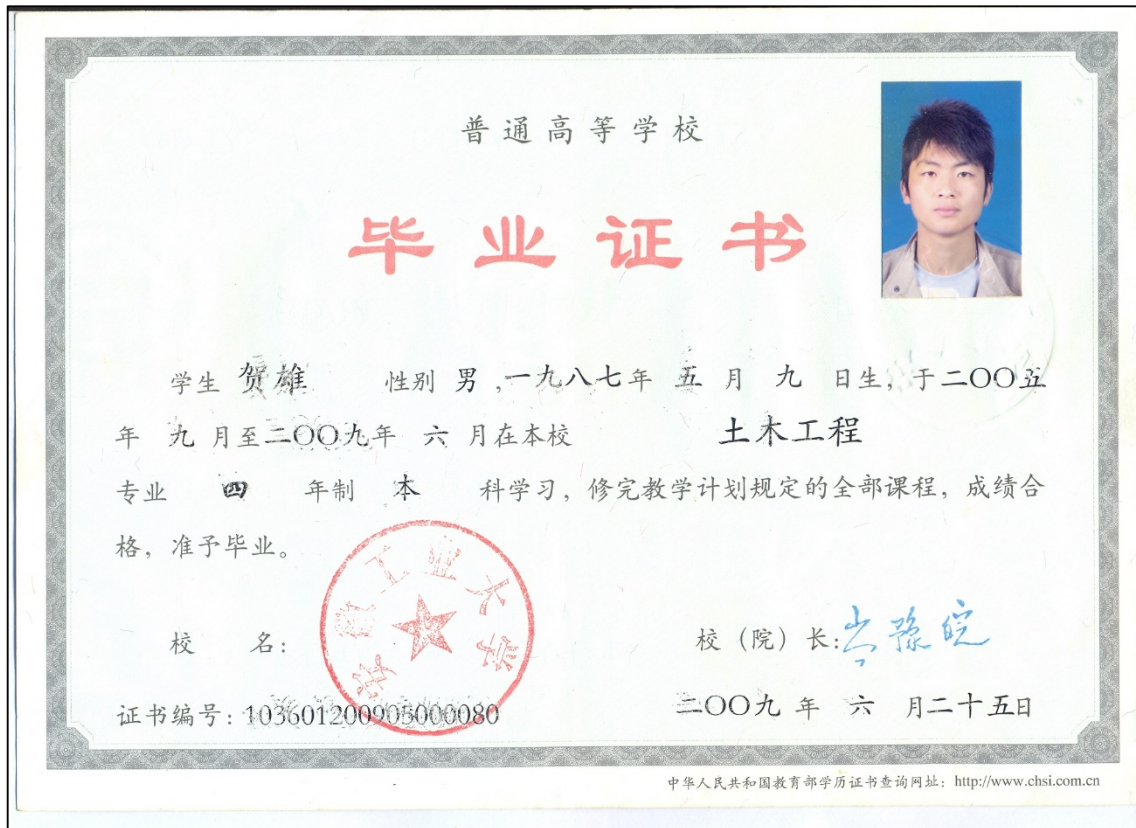 普通高等学校
毕业证书
学生 贺雄 性别 男 ,一九八七年 五 月 九 日生，于二〇〇五
年 九 月至二〇〇九年 六 月在本校 土木工程
专业 四 年制 本 科学习，修完教学计划规定的全部课程，成绩合
格，准予毕业。
安徽工业大学
校 名： 校（院）长：
证书编号：103601200905000080 二〇〇九 年 六 月二十五日
中华人民共和国教育部学历证书查询网址：http://www.chsi.com.cn